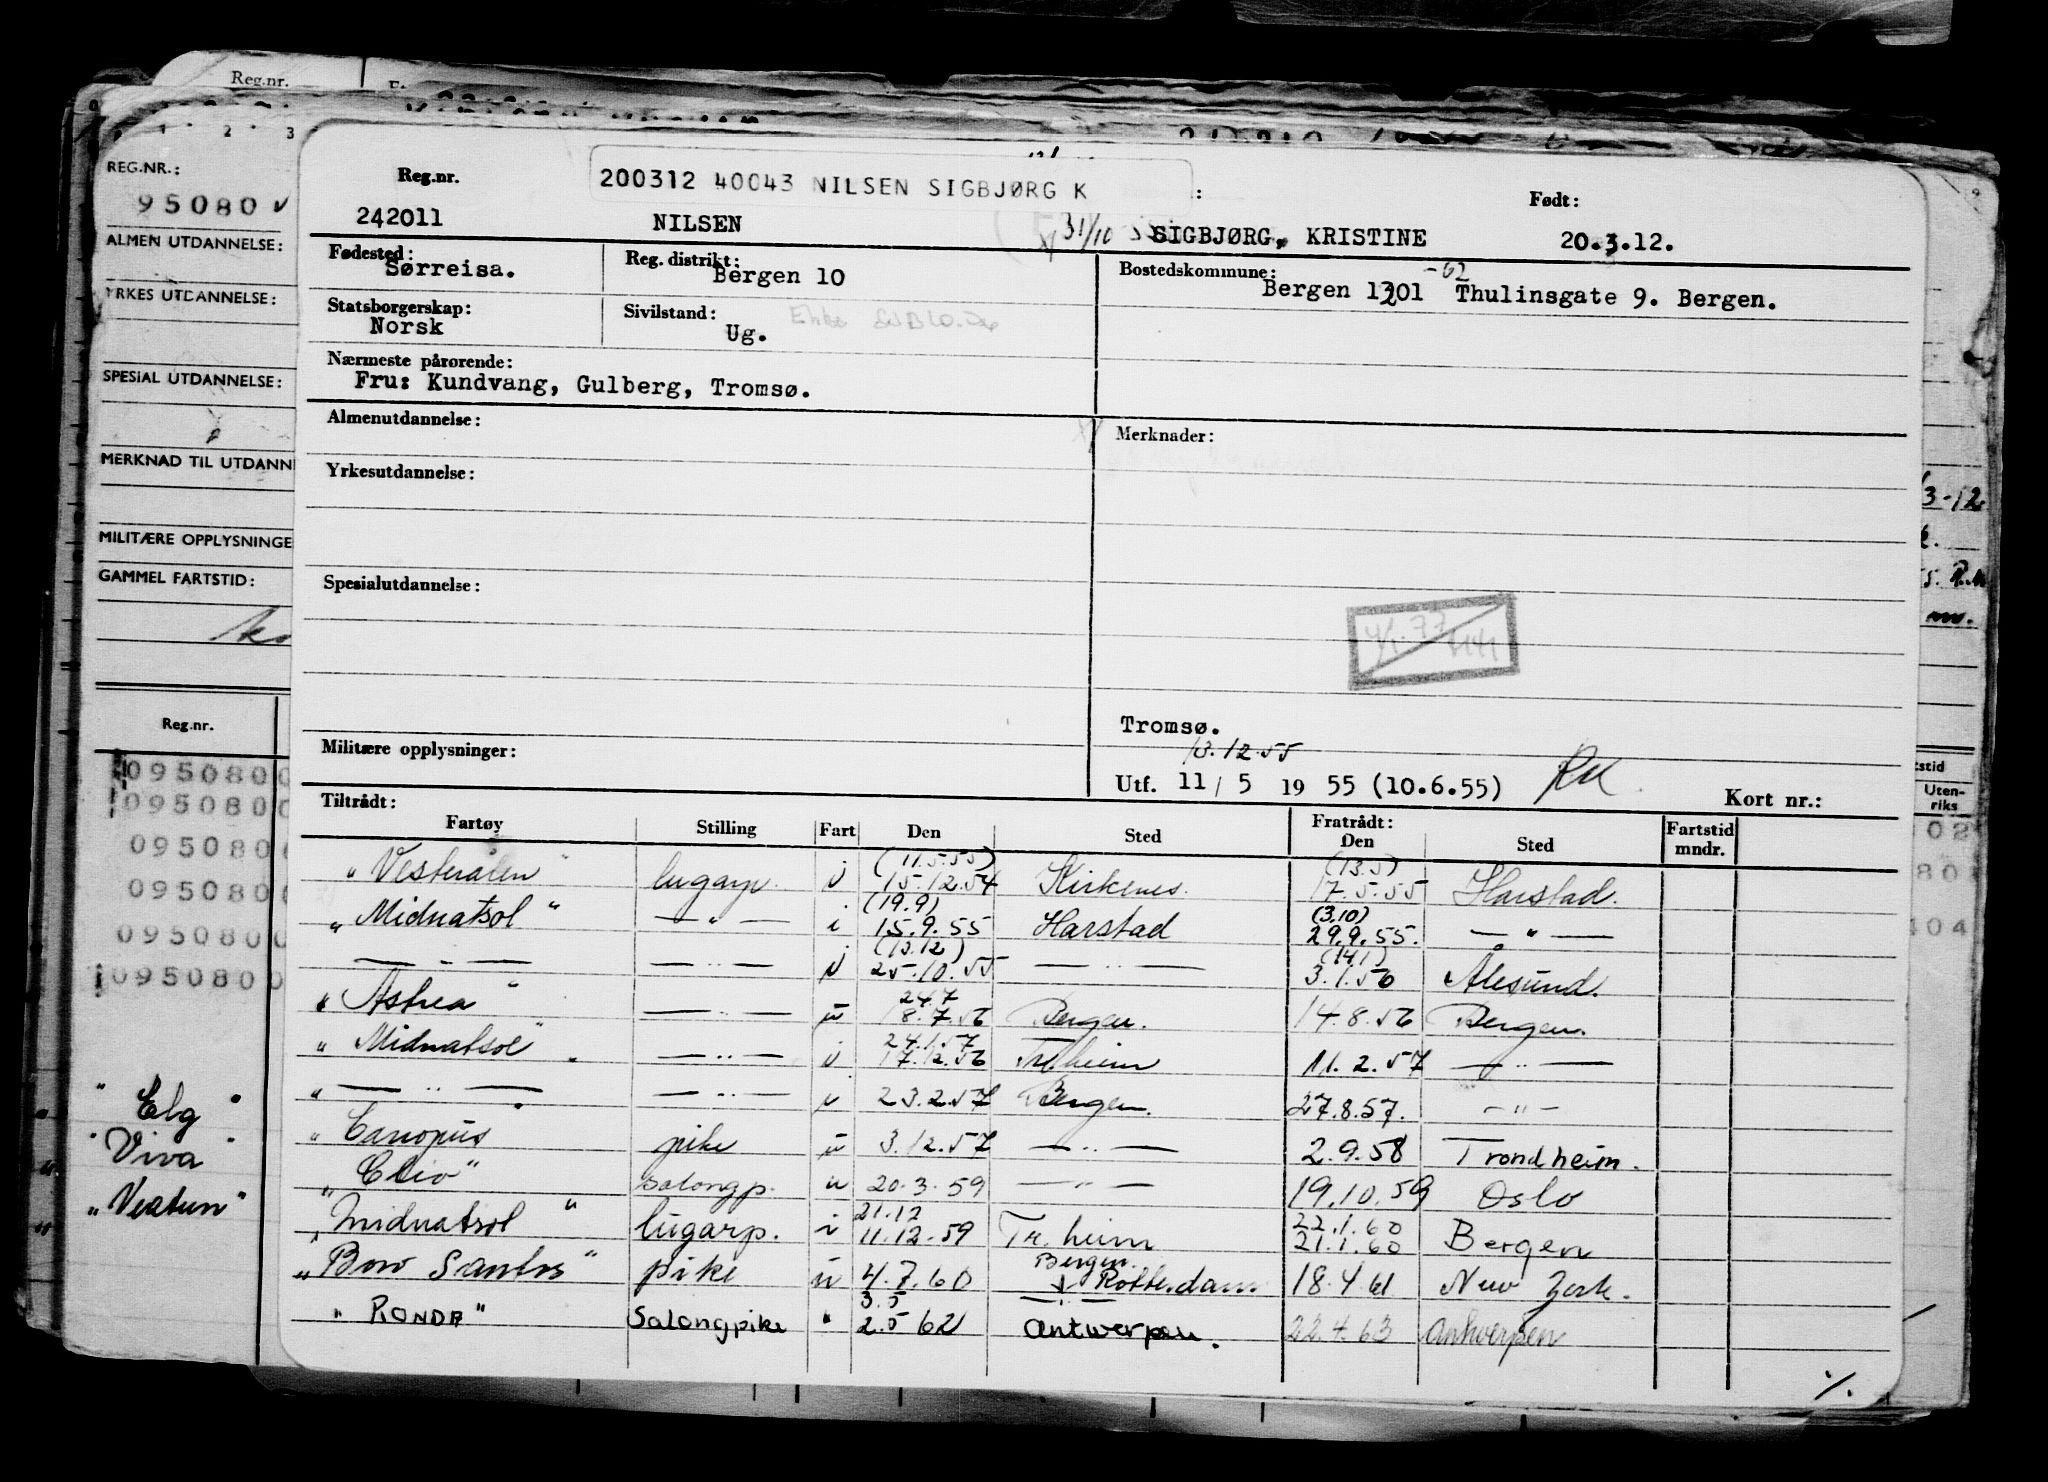 Reg.nr.
REG.NR.:
95080
ALMEN UTDANNELSE:
YRKES UTDANNELSE:
SPESIAL UTDANNELSE:
MERKNAD TIL UTDANN
MILITÆRE OPPLYSNINGE
GAMMEL FARTSTID:
Reg.nr.
0950800
0950800
095080
095080
0950800
0950800
" Elg "
" Viva "
" Veatun "
Reg.nr. 200312 40043 NILSEN SIGBJØRG K : Født:
242011 NILSEN 31/10 55 SIGBJØRG, KRISTINE 20.3.12.
Fødested: Sørreisa. Reg. distrikt: Bergen 10 Bostedskommune: Bergen 1301 -62 Thulinsgate 9. Bergen.
Statsborgerskap: Norsk Sivilstand: Ug.
Nærmeste pårørende:
Fru: Kundvang, Gulberg, Tromsø.
Almenutdannelse: Merknader:
Yrkesutdannelse:
Spesialutdannelse:
4/1.77
Tromsø.
Militære opplysninger: 13.12.55
Utf. 11 / 5 19 55 (10.6.55) RM Kort nr.:
Tiltrådt: Fratrådt:
Fartøy Stilling Fart Den Sted Den Sted Fartstid mndr.
(11.5.55) (13.5)
"Vesterålen" lugarp. i 15.12.54 Kirkenes. 17.5.55 Harstad.
(19.9) (3.10)
"Midnatsol" — " — i 15.9.55 Harstad 29.9.55. — " —
(13.12) (14.1)
— " — — " — i 25.10.55 — " — 3.1.56 Ålesund.
24.7
"Astrea" — " — u 18.7.56 Bergen. 14.8.56 Bergen.
24.1.57
"Midnatsol" — " — i 17.12.56 Tr.heim 11.2.57 — " —
" — " — — " — i 23.2.57 Bergen. 27.8.57. — " —
"Canopus" pike u 3.12.57 — " — 2.9.58 Trondheim.
"Clio" salongp. u 20.3.59 — " — 19.10.59 Oslo
21.12 22.1.60
"Midnatsol" lugarp. i 11.12.59 Tr.heim 21.1.60 Bergen
Bergen.
"Bow Santos" pike u 4.7.60 Rotterdam 18.4.61 New York.
3.5 — " —
"RONDA" Salongpike " 2.5 62 Antwerpen. 22.4.63 Antwerpen
%.
3-12
tstid
Uten-
riks
02
80
404